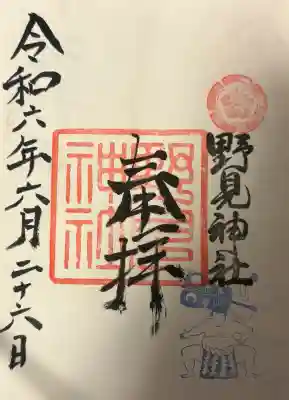 野見神社
奉拝
令和六年六月二十六日